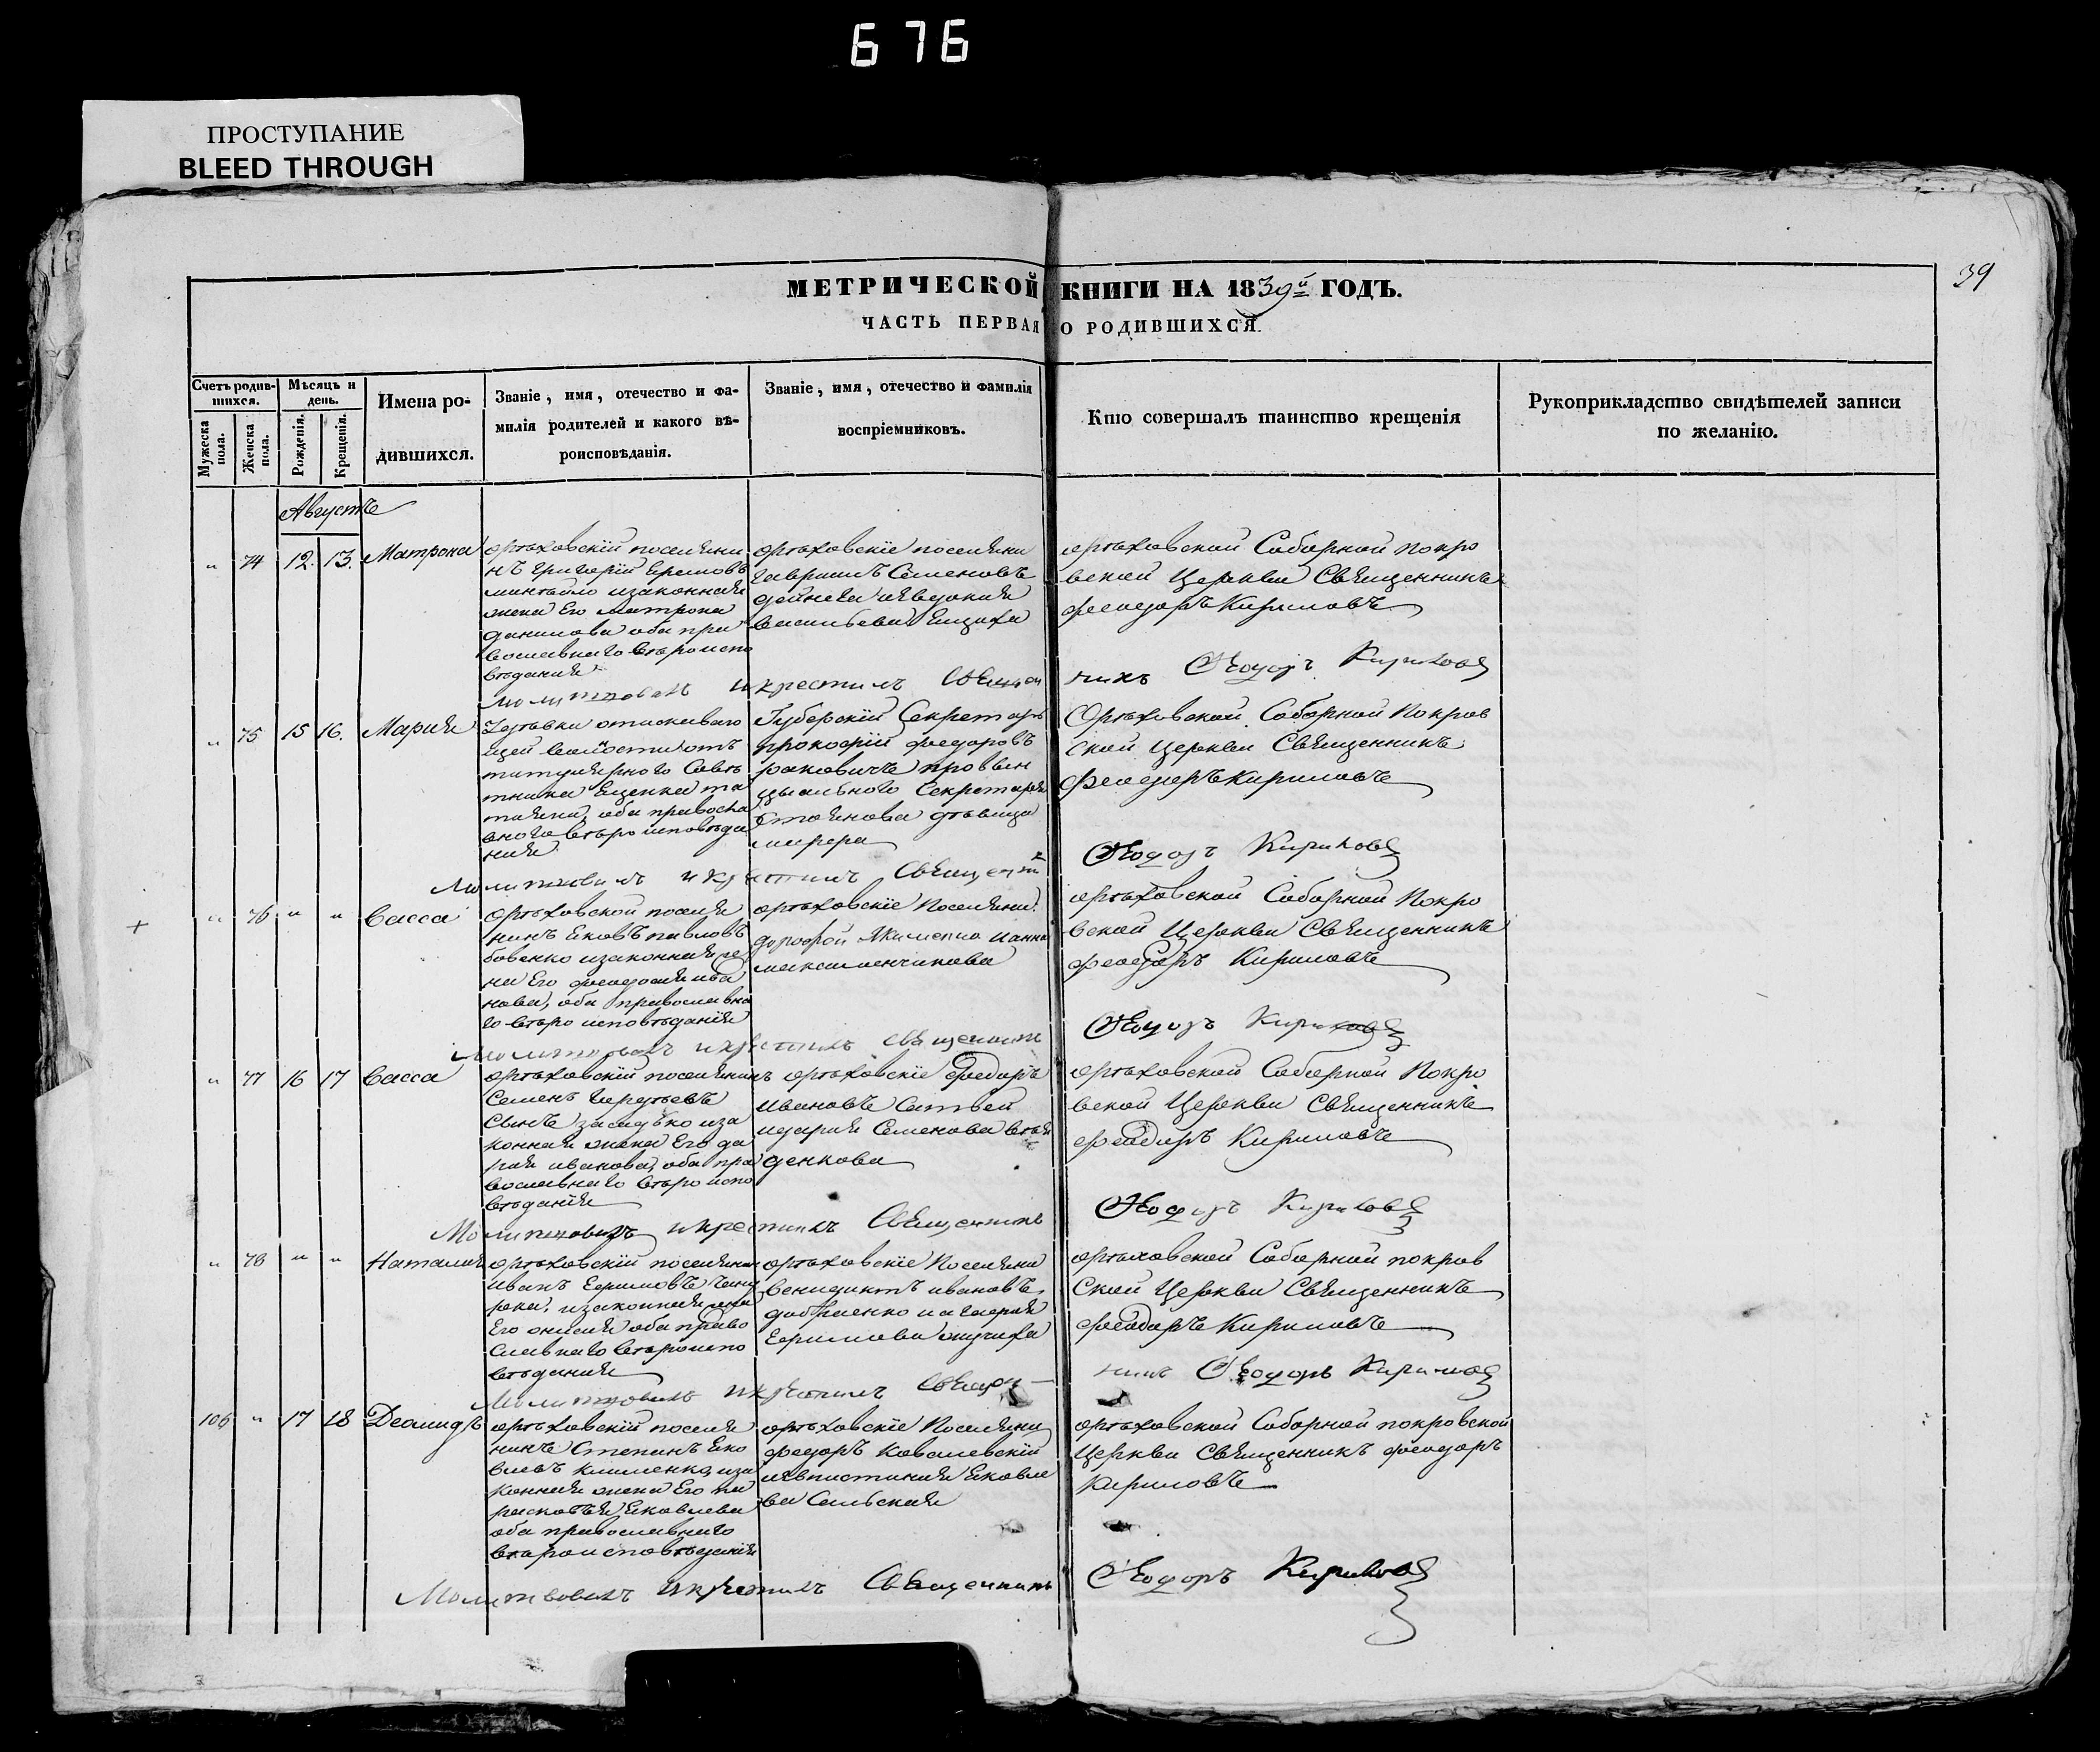 676
ПРОСТУПАНИЕ
BLEED THROUGH
39
МЕТРИЧЕСКОЙ КНИГИ НА 1839й ГОДЪ.
ЧАСТЬ ПЕРВАЯ О РОДИВШИХСЯ.
Счетъ родив-
шихся.
Мужеска
пола.
Женска
пола.
Мѣсяцъ и
день.
Рожденія.
Крещенія.
Имена ро-
дившихся.
Званіе, имя, отечество и фа-
милія родителей и какого вѣ-
роисповѣданія.
Званіе, имя, отечество и фамилія
воспріемниковъ.
Кто совершалъ таинство крещенія
Рукоприкладство свидѣтелей записи
по желанію.
Августъ
" 74 12. 13. Матрона
орѣховскій поселяни
нъ Григорій
изаконная
жена Его Матрона
данилова оба пра
вославнаго вѣроиспо
вѣданія
орѣховскіе поселяни
гавриилъ Семеновъ
дейнека иевдокия
васильева
орѣховской Соборной покро
вской Церкви Священникъ
феодоръ Кириловъ
Молитвовалъ и крестилъ Священ
никъ Ѳеодоръ Кириловъ
" 75 15 16. Мария
отъ
титулярного Совѣ
тника
оба правосла
вного вѣроисповѣда
ния
Губерскій Секретарь
прокофій федоровъ
раковичъ
Секретаря
Стоянова дѣвица
Орѣховской Соборной Покров
ской Церкви Священникъ
Феодоръ Кириловъ
Молитвовалъ и крестилъ Священ
Ѳеодоръ Кириловъ
" 76 " " Васса
орѣховской поселя
нинъ Яковъ павловъ
изаконная же
на Его феодосия ива
нова, оба православна
го вѣро исповѣдания
орѣховские Поселяни
дорофей Якименко ианна
орѣховской Соборной Покро
вской Церкви Священникъ
феодоръ Кириловъ
Молитвовалъ и крестилъ Священникъ
Ѳеодоръ Кириловъ
" 77 16 17 Васса
орѣховскій поселянинъ
Семенъ
Сынъ иза
конная жена Его да
рия иванова, оба пра
вославнаго вѣро испо
вѣдания
орѣховские Феодоръ
Ивановъ
идария Семенова
денкова
орѣховской Соборной Покро
вской Церкви Священникъ
феодоръ Кириловъ
Молитвовалъ и крестилъ Священникъ
Ѳеодоръ Кириловъ
" 78 " " Наталия
орѣховскій поселянин
Иванъ Ефимовъ
изаконная жена
Его оба право
славнаго вѣроиспо
вѣдания
орѣховские Поселяни
венидиктъ ивановъ
Ефимова
орѣховской Соборной покров
ской Церкви Священникъ
феодоръ Кириловъ
Молитвовалъ и крестилъ Священ-
никъ Ѳеодоръ Кириловъ
106 " 17 18 Деомидъ
орѣховскій поселя
нинъ Степанъ Яко
влевъ клименко, иза
конная жена Его па
расковья Яковлева
оба православнаго
вѣроисповѣдания
орѣховские Поселяни
федоръ Ковалевский
Яковле
ва
орѣховской Соборной покровской
Церкви Священникъ феодоръ
Кириловъ
Молитвовалъ и крестилъ Священникъ
Ѳеодоръ Кириловъ